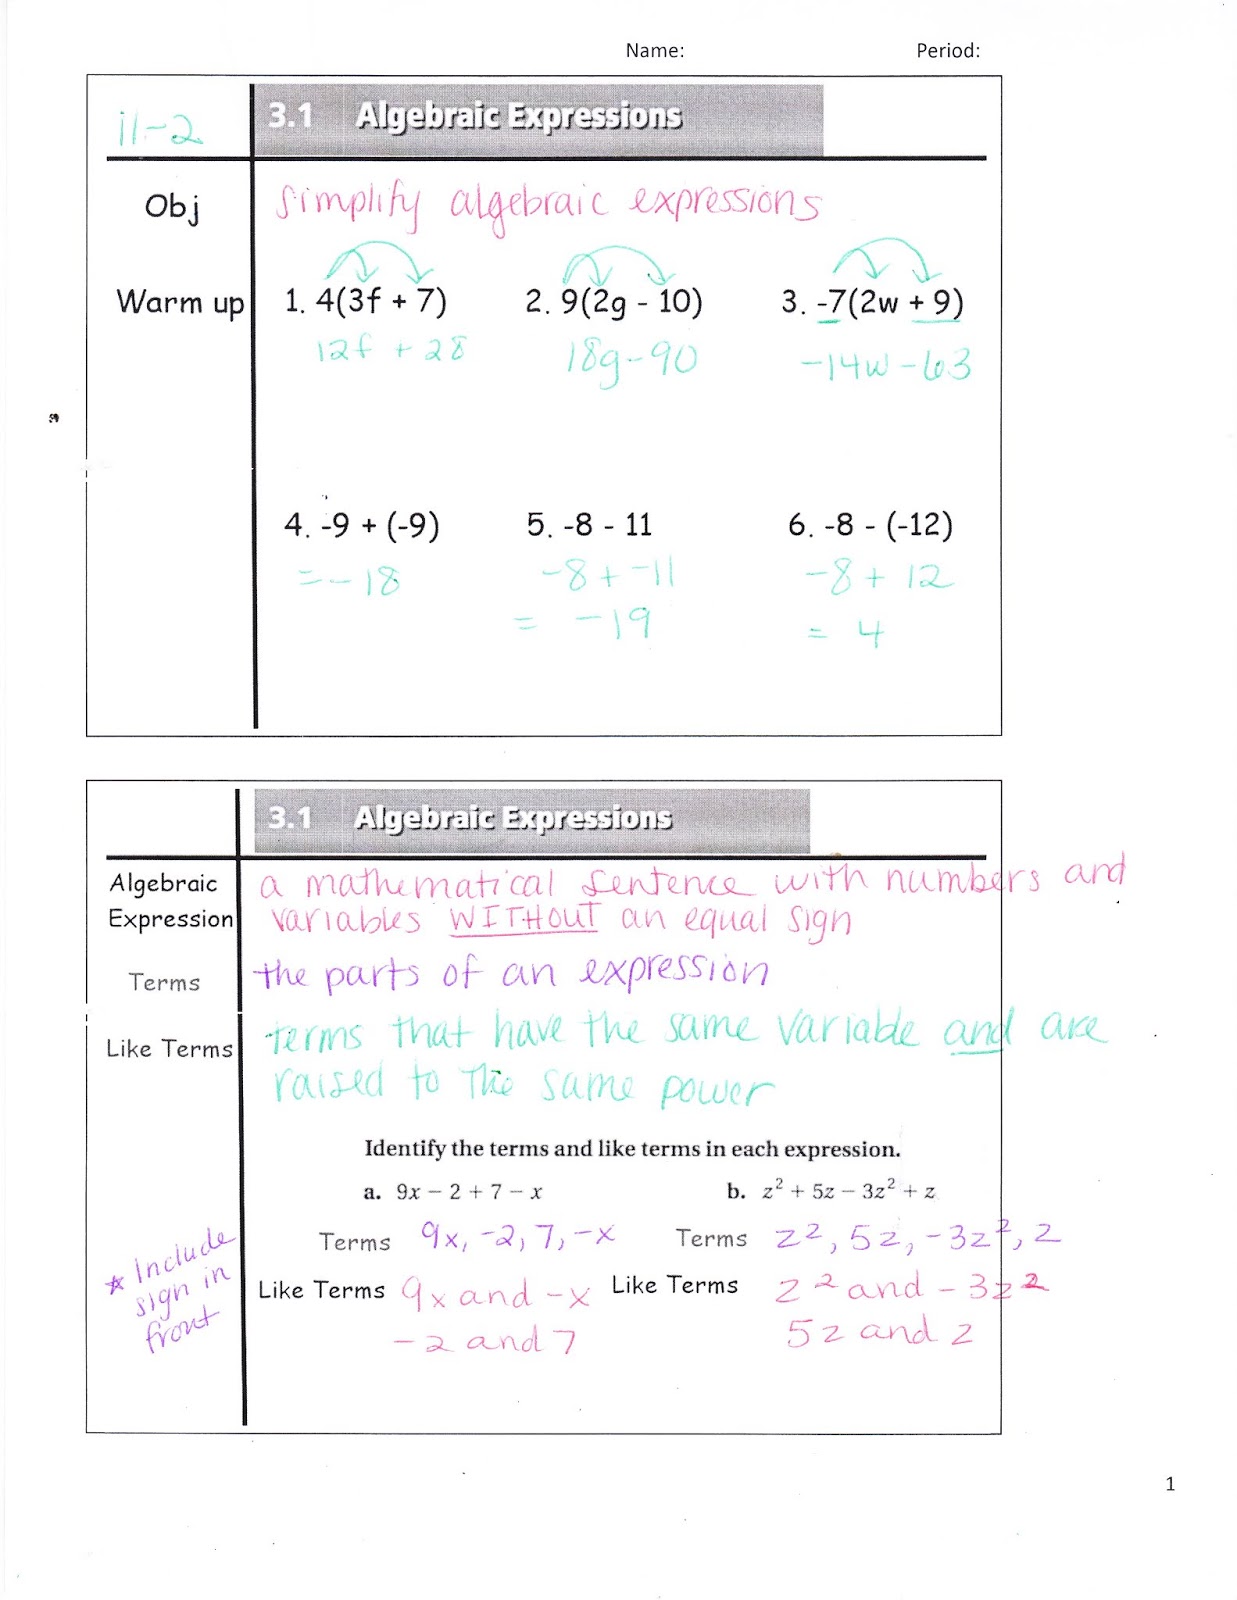 Name: Period:
11-2 3.1 Algebraic Expressions
Obj simplify algebraic expressions
Warm up 1. 4(3f + 7) 2. 9(2g - 10) 3. -7(2w + 9)
12f + 28 18g - 90 -14w - 63
4. -9 + (-9) 5. -8 - 11 6. -8 - (-12)
= -18 -8 + -11 -8 + 12
= -19 = 4
3.1 Algebraic Expressions
Algebraic a mathematical sentence with numbers and
Expression variables WITHOUT an equal sign
Terms the parts of an expression
Like Terms terms that have the same variable and are
raised to the same power
Identify the terms and like terms in each expression.
a. 9x − 2 + 7 − x b. z² + 5z − 3z² + z
Terms 9x, -2, 7, -x Terms z², 5z, -3z², z
Like Terms 9x and -x Like Terms z² and -3z²
-2 and 7 5z and z
* Include
sign in
front
1